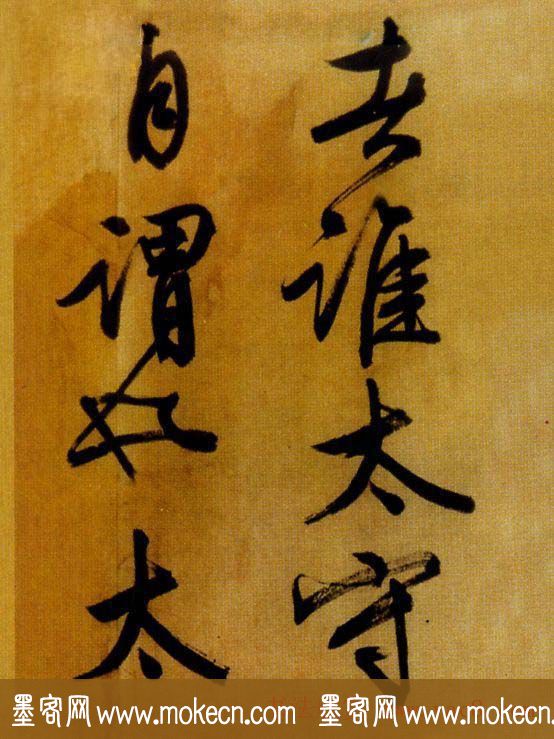 者誰太守
自謂也太
墨客网 www.mokecn.com 墨客网 www.mokecn.com